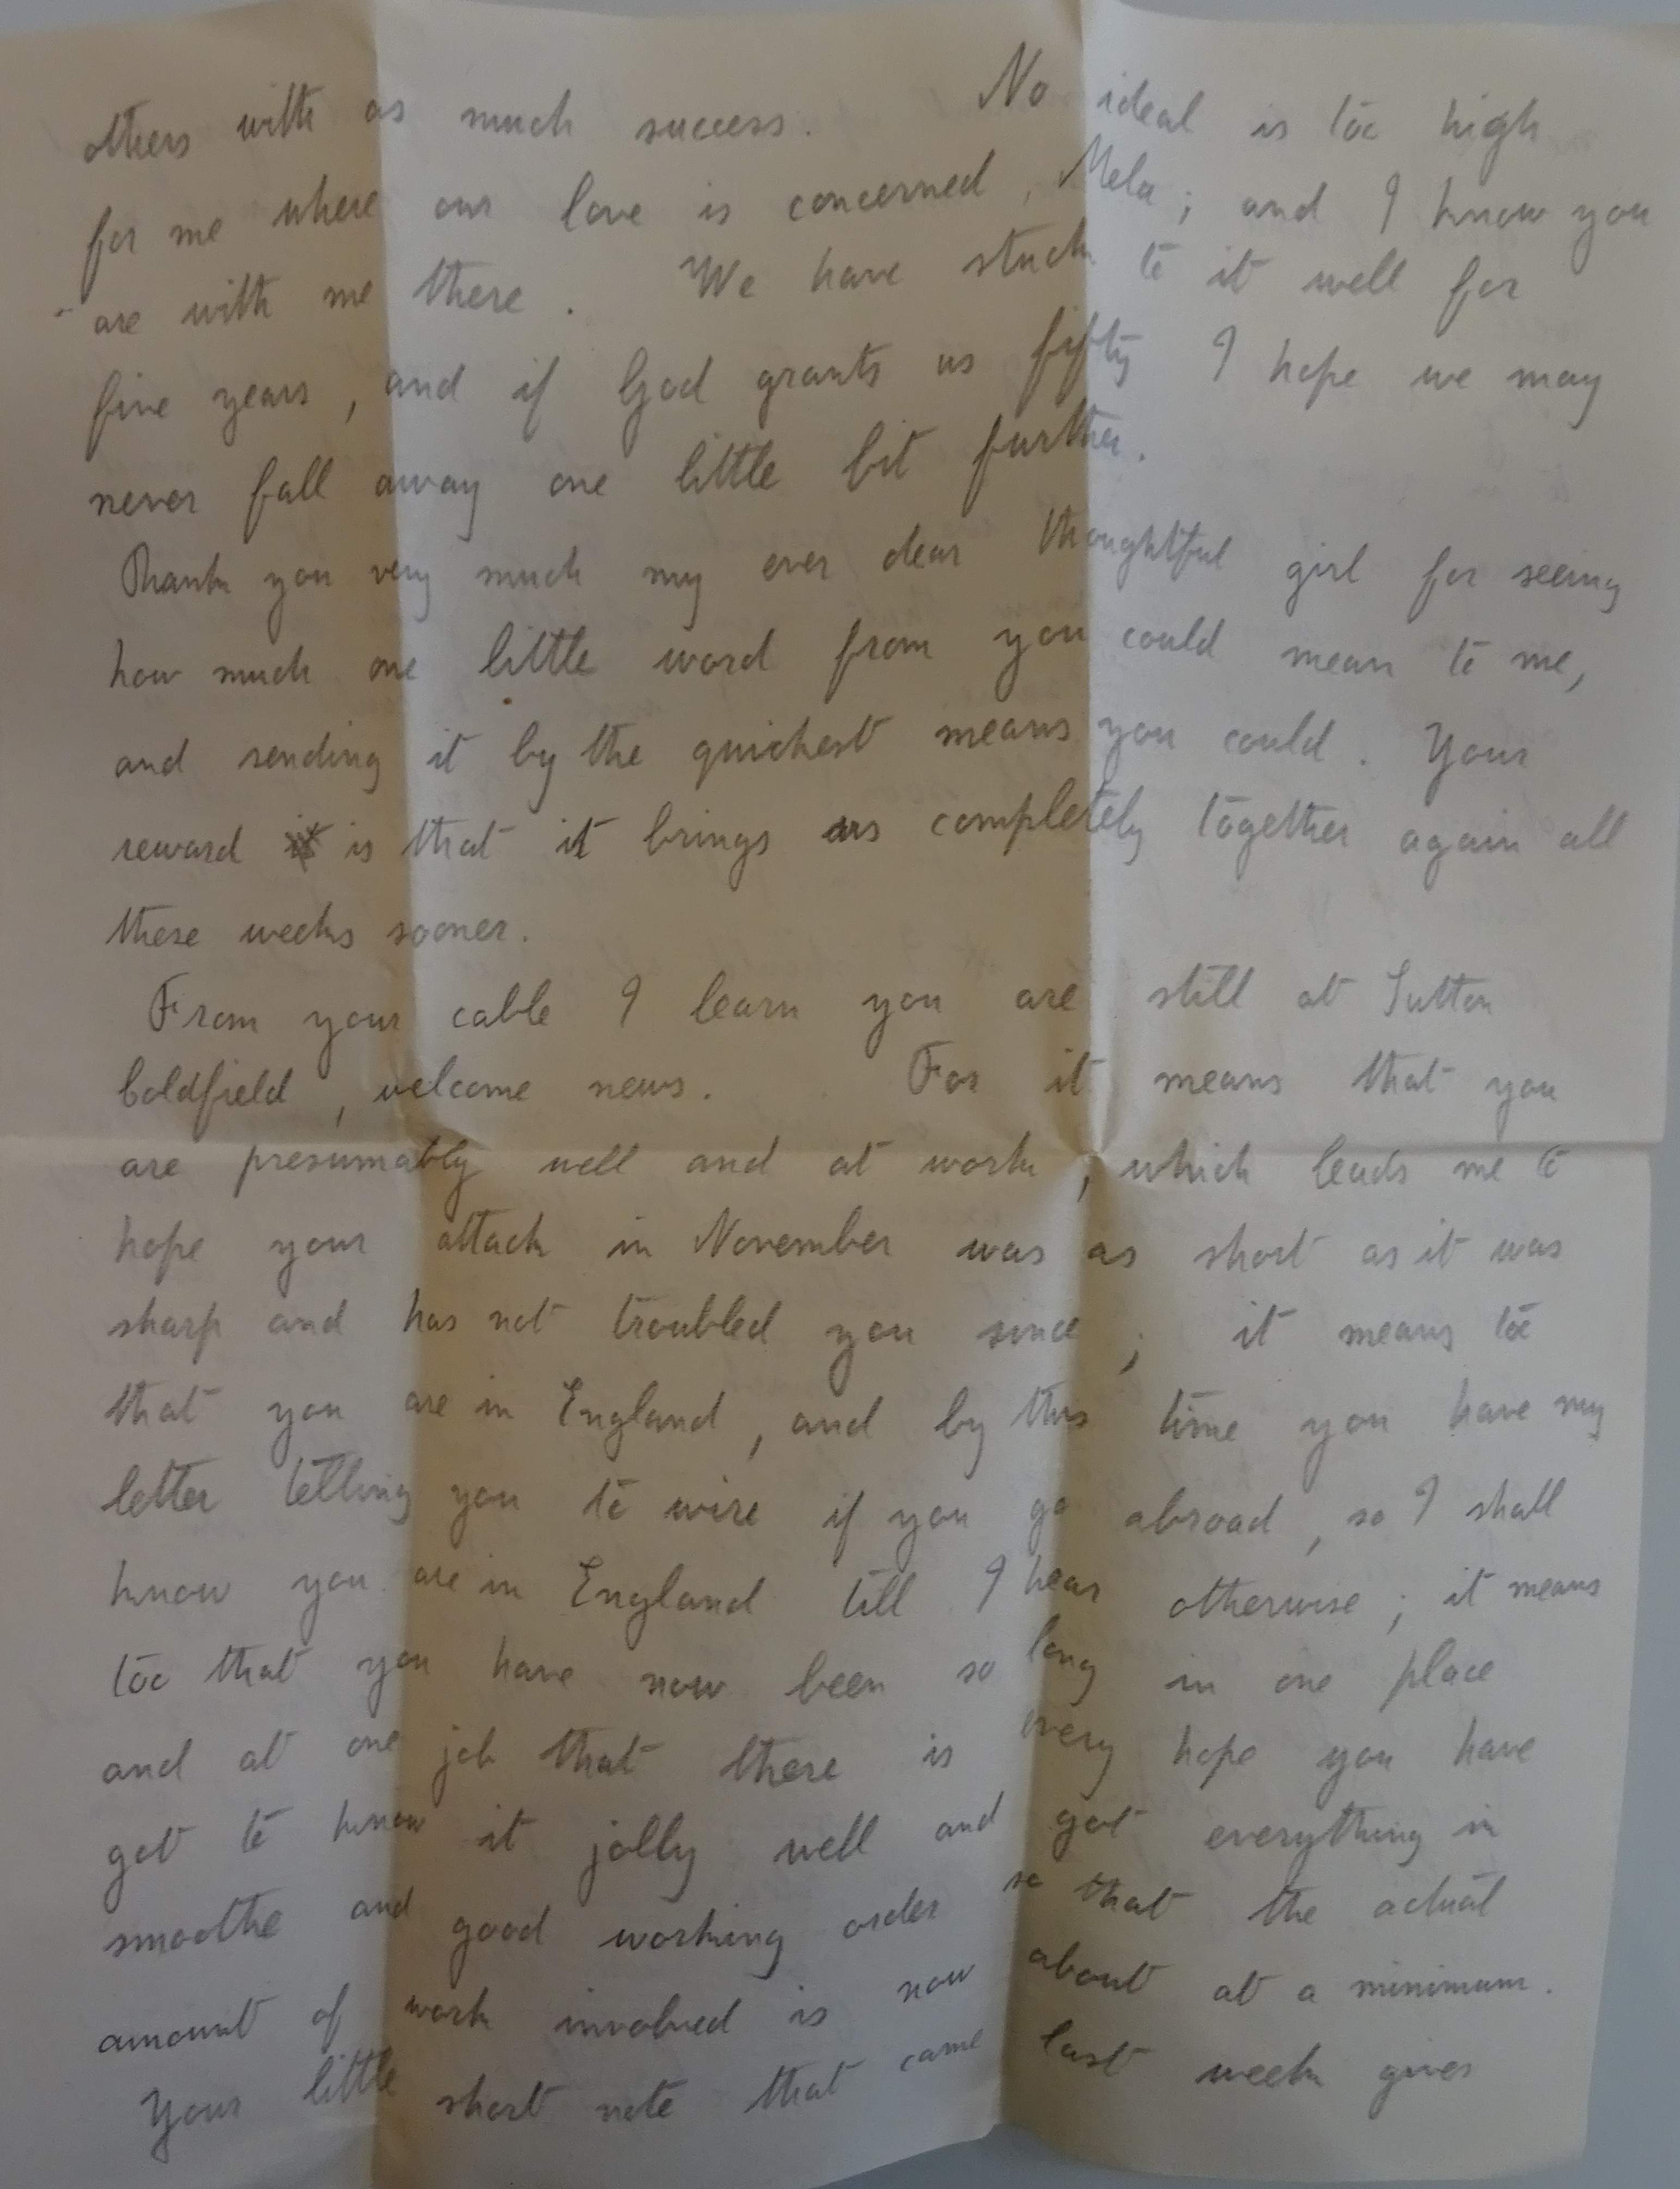 others with as much success. No ideal is too high
for me where our love is concerned, Mela; and I know you
are with me there. We have stuck to it well for
five years, and if God grants us fifty I hope we may
never fall away one little bit further.
Thank you very much my ever dear thoughtful girl for seeing
how much one little word from you could mean to me,
and sending it by the quickest means you could. Your
reward is that it brings us completely together again all
these weeks sooner.
From your cable I learn you are still at Sutton
Coldfield, welcome news. For it means that you
are presumably well and at work, which leads me to
hope your attack in November was as short as it was
sharp and has not troubled you since; it means too
that you are in England, and by this time you have my
letter telling you to wire if you go abroad, so I shall
know you are in England till I hear otherwise; it means
too that you have now been so long in one place
and at one job that there is every hope you have
got to know it jolly well and got everything in
smoothe and good working order so that the actual
amount of work involved is now about at a minimum.
Your little short note that came last week gives